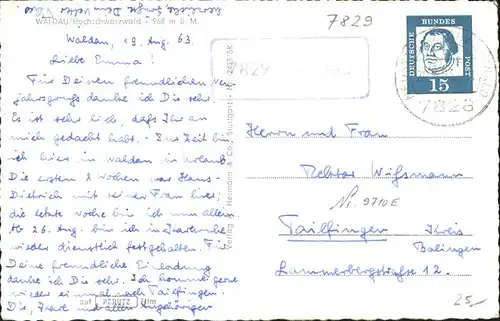 7829
WALDAU/Hochschwarzwald - 968 m ü. M.
Waldau, 19. Aug. 63
Liebe Emma!
Für Deinen freundlichen Neu
jahrsgruß danke ich Dir sehr.
Es ist sehr lieb, daß Ihr an
mich gedacht habt. - Zur Zeit bin
ich hier in Waldau in Urlaub.
Die ersten 2 Wochen war Hans-
Dietrich mit seiner Frau hier;
die letzte Woche bin ich nun allein.
Ab 26. Aug. bin ich in
wieder dienstlich festgehalten. Für
Deine freundliche Einladung
danke ich Dir sehr. Ich komme gerne
wieder einmal nach Tailfingen.
Dir, und allen Angehörigen
auf PERUTZ Film
7829
DEUTSCHE BUNDES POST
15
7828
Herrn und Frau
Rektor Wißmann
Nr. 9710E
Tailfingen Kreis
Balingen
Lammerbergstraße 12.
25,-